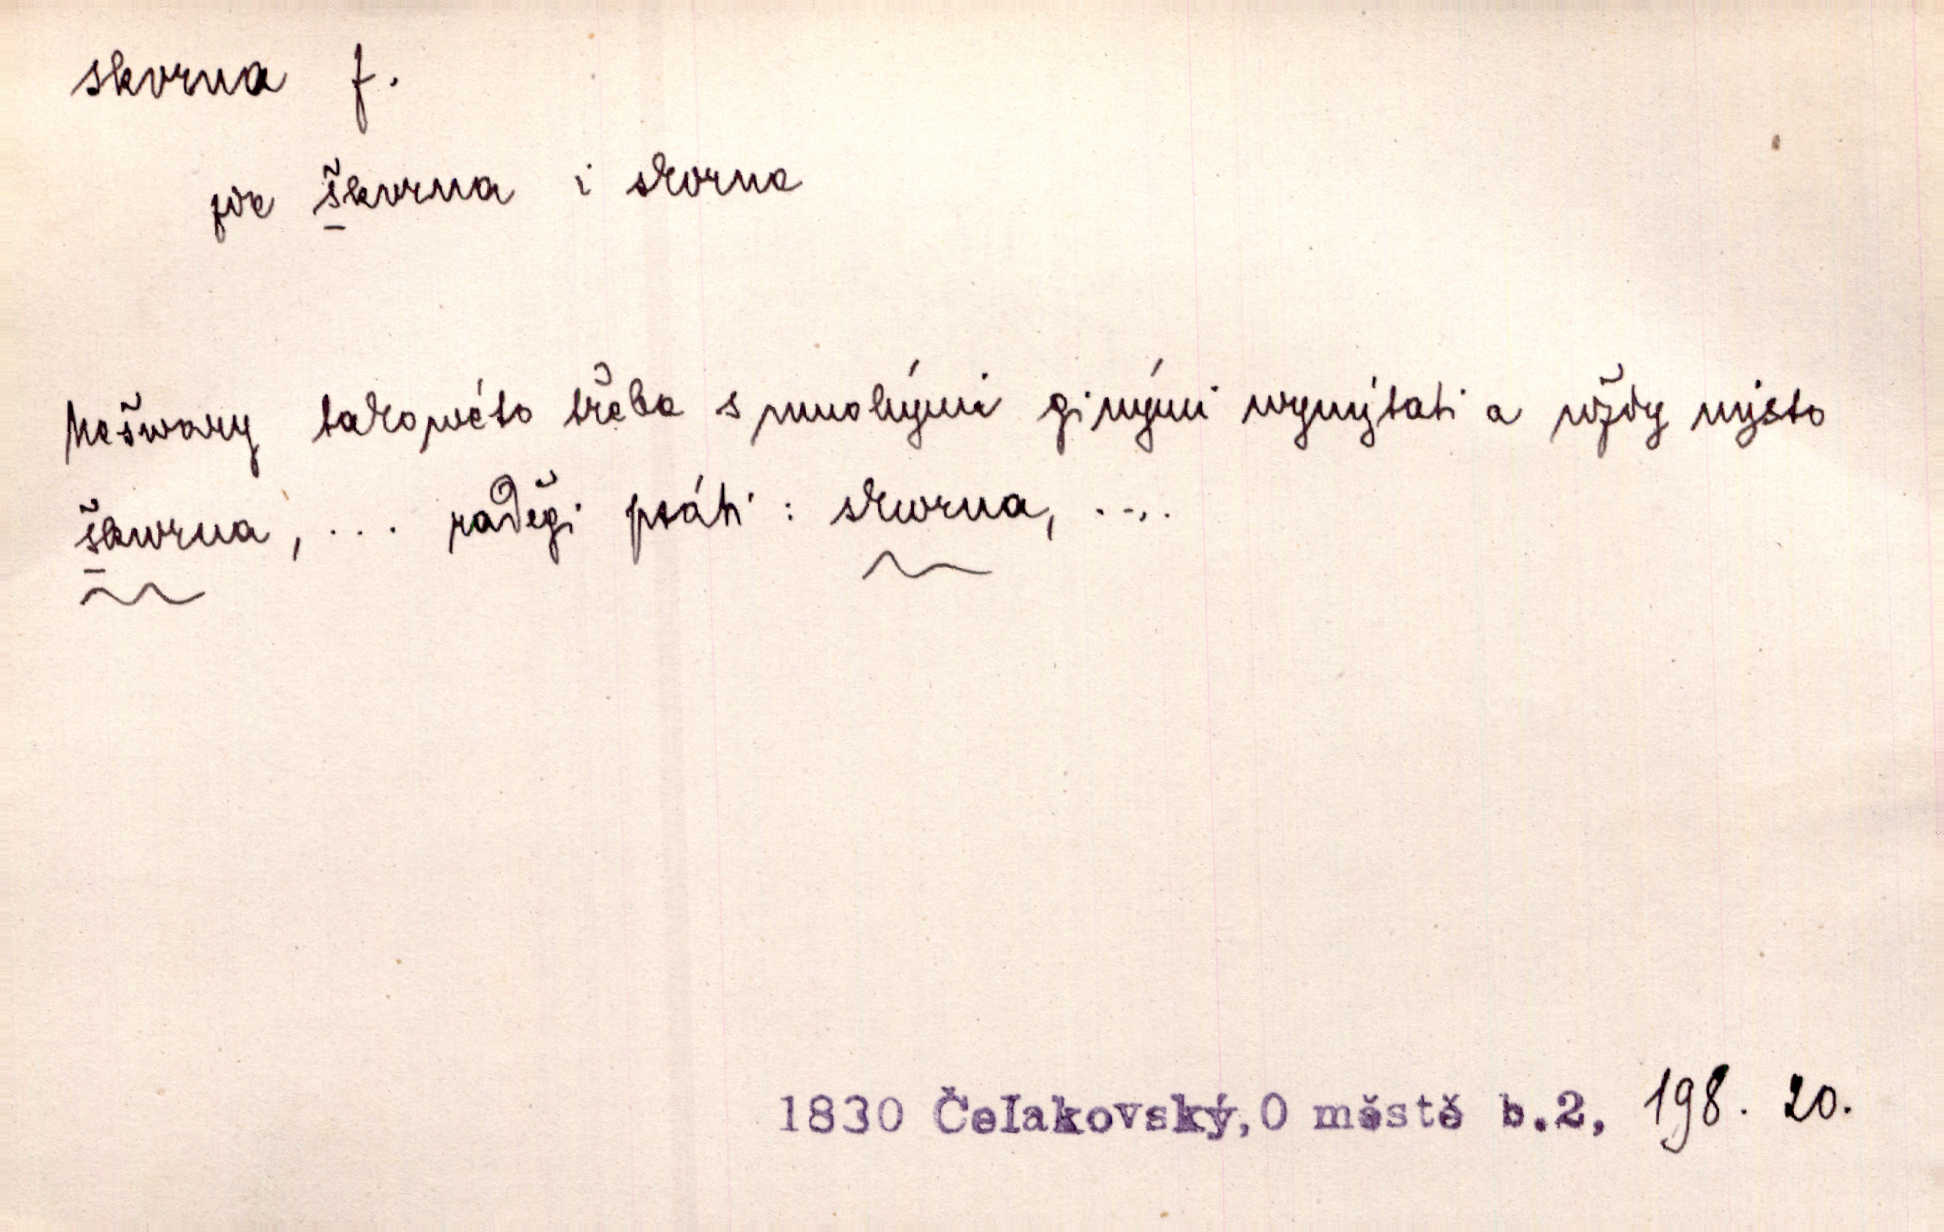 skvrna f.
zde škvrna i skvrna
Nešwary takowéto třeba s mnohými ginými wymýtati a wždy mjsto
škwrna, ... raděgi psáti : skwrna, ....
1830 Čelakovský, O městě b.2, 198. 20.